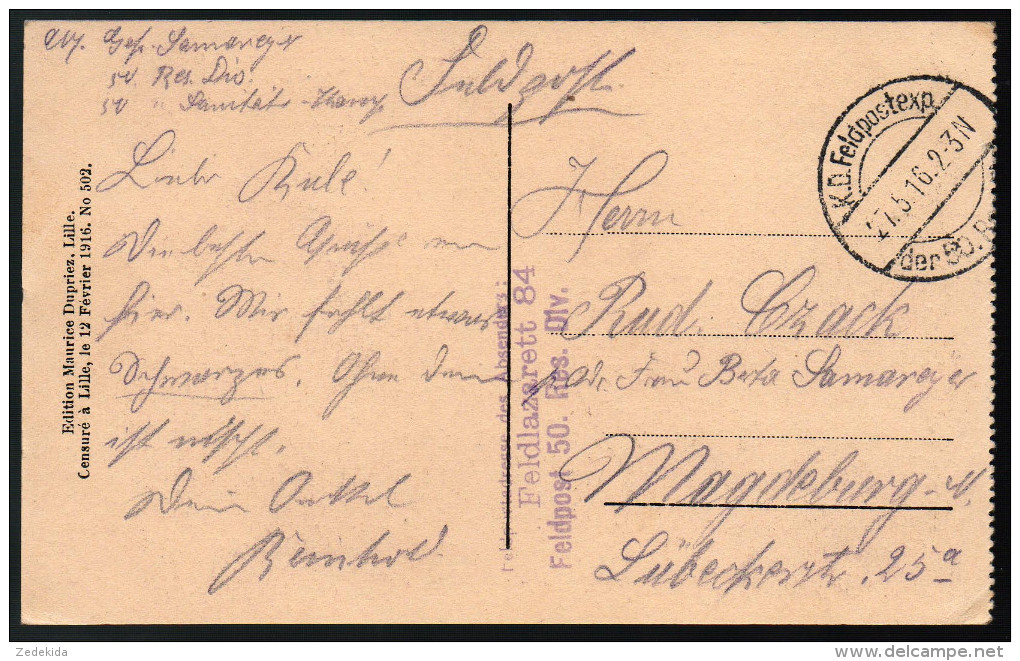 Gefr. Samareyer
50 Res. Div.
50 " Sanitäts-Komp.
Feldpost.
Liebe Rule!
Die besten Grüße von
hier. Mir fehlt etwas
Schwarzes. Ohne dem
ist nischt.
Dein Onkel
Reinhold
Edition Maurice Dupriez, Lille.
Censuré à Lille, le 12 Février 1916. No 502.
des Absenders:
Feldlazarett 84
Feldpost 50. Res. Div.
K.D. Feldpostexp.
27.5.16. 2-3N
der 50. R
Herrn
Rud. Czack
adr. Frau Berta Samareyer
Magdeburg-N.
Lübeckerstr. 25a
Zedekida